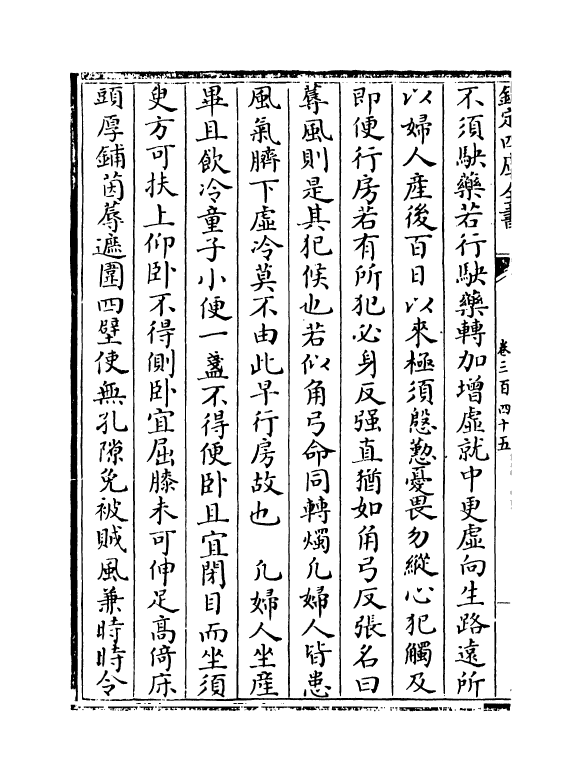 欽定四庫全書
卷三百四十五
不須駃藥若行駃藥轉加增虛就中更虛向生路遠所
以婦人産後百日以來極須慇懃憂畏勿縱心犯觸及
即便行房若有所犯必身反强直猶如角弓反張名曰
蓐風則是其犯候也若似角弓命同轉燭凢婦人皆患
風氣臍下虛冷莫不由此早行房故也　凢婦人坐産
畢且飲冷童子小便一盞不得便卧且宜閉目而坐須
㬰方可扶上仰卧不得側卧宜屈膝未可伸足髙倚床
頭厚鋪茵蓐遮圍四壁使無孔隙免被賊風兼時時令